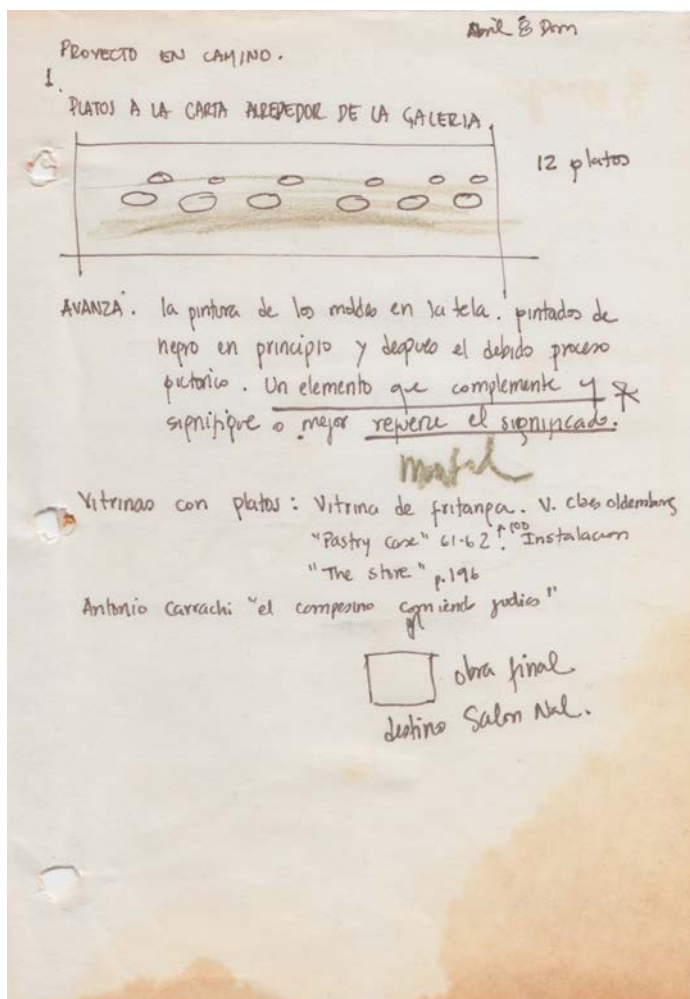 Abril 8 Dom
PROYECTO EN CAMINO.
1.
PLATOS A LA CARTA ALREDEDOR DE LA GALERIA
12 platos
AVANZA: la pintura de los moldes en la tela. pintados de
negro en principio y después el debido proceso
pictorico. Un elemento que complemente y
signifique o mejor refuerze el significado.
Vitrinas con platos: Vitrina de fritanga. V. Claes oldemburg
"Pastry case" 61-62 p. 100 Instalacion
"The store" p. 196
Antonio Carrachi "el campesino comiendo judias"
obra final
destino Salon Nal.